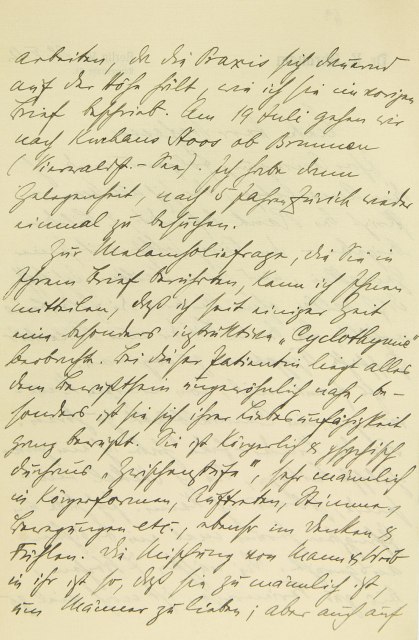 arbeiten, da die Praxis sich dauernd
auf der Höhe hält, wie ich sie im vorigen
Brief beschrieb. Am 19 Juli gehen wir
nach Kurhaus Stoos ob Brunnen
(Vierwaldst.-See). Ich habe dann
Gelegenheit, nach 5 Jahren Zürich wieder
einmal zu besuchen.
Zur Melancholiefrage, die Sie in
Ihrem Brief berührten, kann ich Ihnen
mitteilen, daß ich seit einiger Zeit
eine besonders instruktive „Cyclothymie"
beobachte. Bei dieser Patientin liegt alles
dem Bewußtsein ungewöhnlich nah, be-
sonders ist sie sich ihrer Liebesunfähigkeit
ganz bewußt. Sie ist körperlich & psychisch
durchaus „Zwischenstufe", sehr männlich
in Körperformen, Auftreten, Stimme,
Bewegungen etc., ebenso im Denken &
Fühlen. Die Mischung von Mann & Weib
in ihr ist so, daß sie zu männlich ist,
um Männer zu lieben; aber auch auf